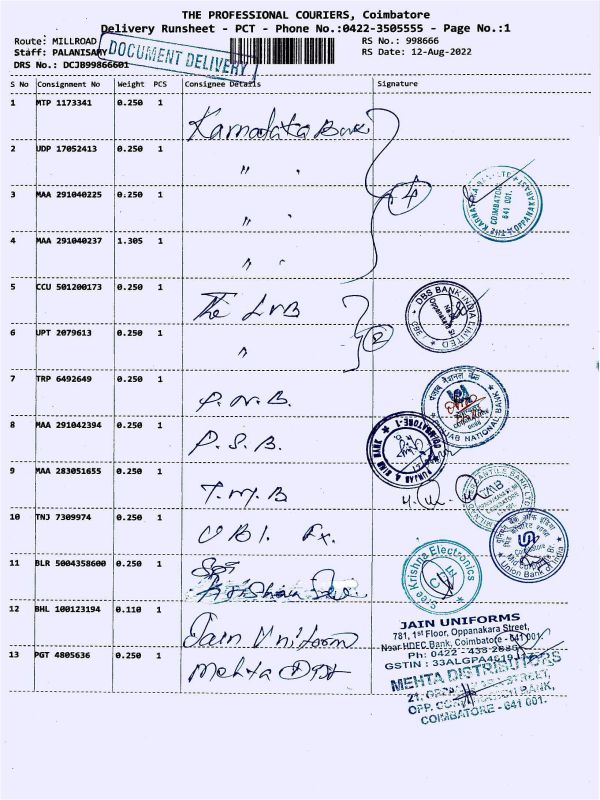 THE PROFESSIONAL COURIERS, Coimbatore
Delivery Runsheet - PCT - Phone No.:0422-3505555 - Page No.:1
Route: MILLROAD
RS No.: 998666
Staff: PALANISAMY
RS Date: 12-Aug-2022
DRS No.: DCJB99866601
DOCUMENT DELIVERY
S No Consignment No Weight PCS Consignee Details Signature
1 MTP 1173341 0.250 1 Karnataka Bank
2 UDP 17052413 0.250 1 〃
3 MAA 291040225 0.250 1 〃
4 MAA 291040237 1.305 1 〃
4
THE KARNATAKA BANK LTD OPPANAKARAST
COIMBATORE
641 001.
5 CCU 501200173 0.250 1 The LVB
DBS BANK INDIA LIMITED
Oppanakara St
6 UPT 2079613 0.250 1 〃
2
7 TRP 6492649 0.250 1 P.N.B.
पंजाब नैशनल बैंक
PUNJAB NATIONAL BANK
8 MAA 291042394 0.250 1 P.S.B.
PUNJAB & SIND BANK COIMBATORE-1
9 MAA 283051655 0.250 1 T.M.B
10 TNJ 7309974 0.250 1 UBI. Ex.
Union Bank of India
11 BLR 5004358600 0.250 1 Sree Krishna Elec.
Sree Krishna Electronics
12 BHL 100123194 0.110 1 Jain Uniform
JAIN UNIFORMS
781, 1st Floor, Oppanakara Street,
Near HDFC Bank, Coimbatore - 641 001.
Ph: 0422 - 438
GSTIN : 33ALGPA4619
13 PGT 4805636 0.250 1 Mehta Dist
MEHTA DISTRIBUTORS
21, STREET,
OPP. CORPORATION BANK,
COIMBATORE - 641 001.